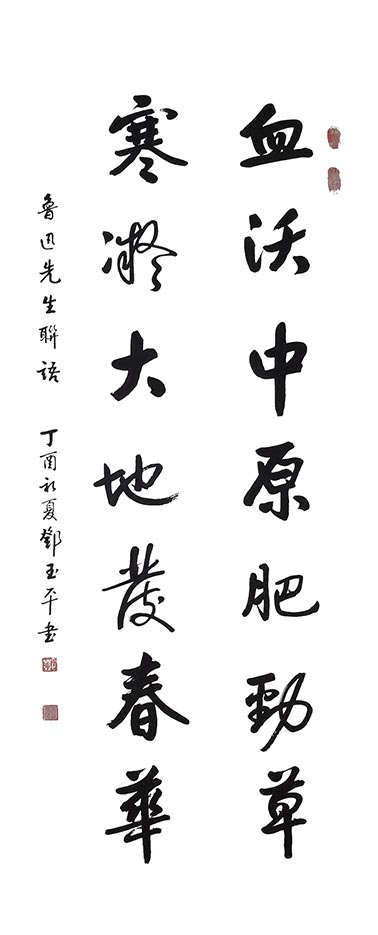 血沃中原肥勁草
寒凝大地發春華
魯迅先生聯語 丁酉初夏鄧玉平書